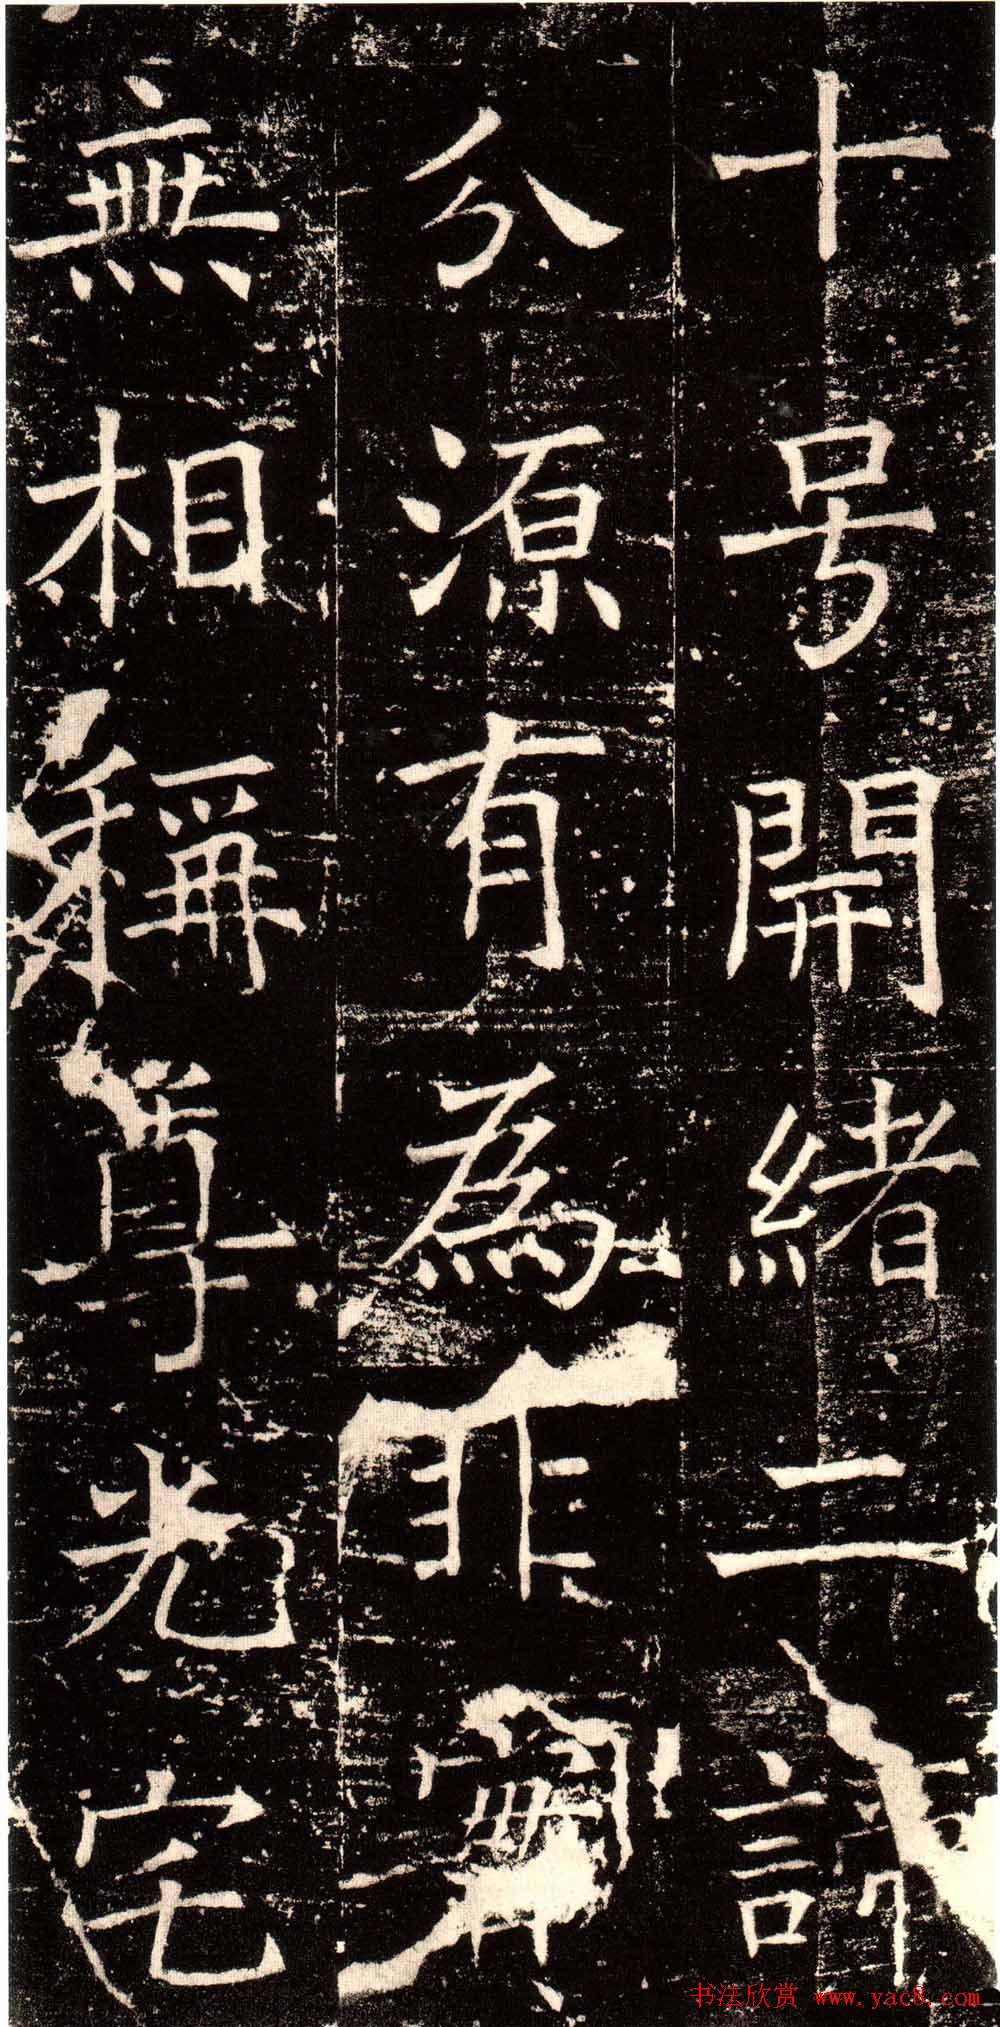 十号開緒二諦
分源有為非實
無相稱尊光宅
书法欣赏 www.yac8.com